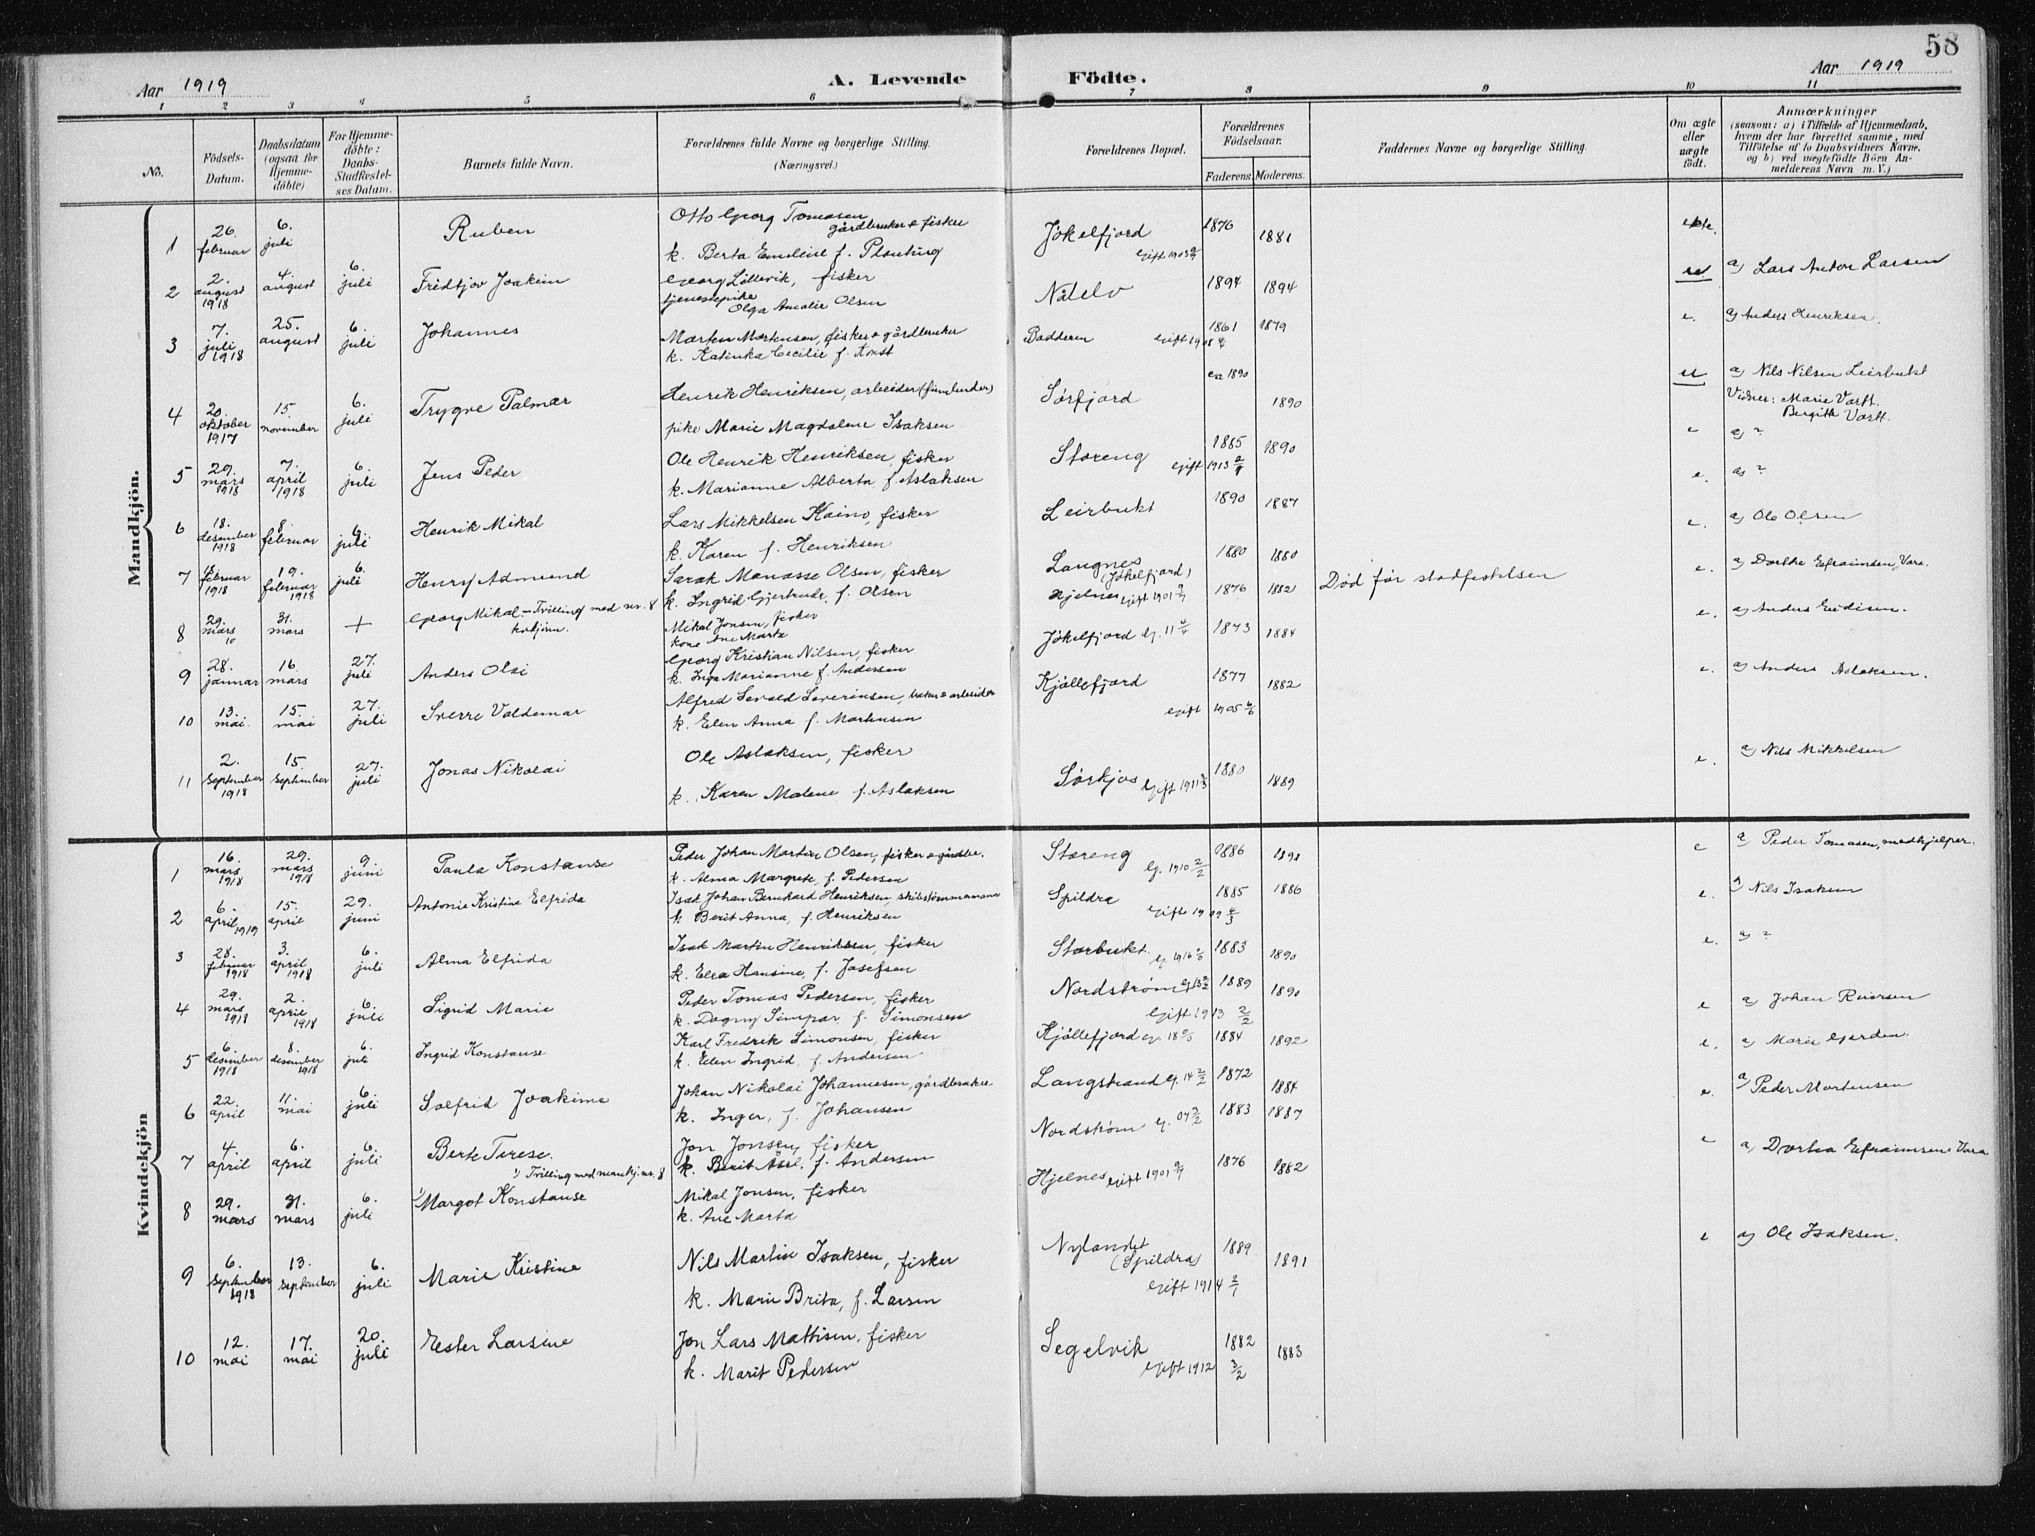 58
Aar 1919
A. Levende Födte.
Aar 1919
1 2 3 4 5 6 7 8 9 10 11
No.
Födsels-Datum.
Daabsdatum (ogsaa for Hjemmedöbte)
For Hjemmedöbte: Daabs-Stadfæstelses Datum.
Barnets fulde Navn.
Forældrenes fulde Navne og borgerlige Stilling. (Næringsvei.)
Forældrenes Bopæl.
Forældrenes Födselsaar.
Faderens. Moderens.
Faddernes Navne og borgerlige Stilling.
Om ægte eller uægte födt.
Anmærkninger (saasom: a) i Tilfælde af Hjemmedaab, hvem der har forrettet samme, med Tilföielse af to Daabsvidners Navne, og b) ved uægtefödte Börn Anmelderens Navn m. V.)
Mandkjön.
1 26. februar 6. juli Ruben Otto Georg Tomasen gårdbruker & fisker Jökelfjord 1876 1881
k. Berta Emeline f. Gift 1903
2 2. august 1918 4. august 6. juli Fridtjov Joakim Georg Lillevik, fisker Nålelv 1894 1894 u a) Lars Anton Larsen
tjenestepike Olga Amalie Olsen
3 7. juli 1918 25. august 6. juli Johannes Morten Mortensen, fisker & gårdbruker Badderen Gift 1908 1861 1879 e. a) Anders Henriksen.
k. Katinka Cecilie f.
4 20. oktober 1917 15. november 6. juli Trygve Palmar Henrik Henriksen, arbeider Sørfjord ca 1890 1890 u a) Nils Nilsen Leirbukt
pike Marie Magdalene Isaksen Vidner: Marie Vartt. Bergitte Vartt.
5 29. mars 1918 7. april 1918 6. juli Jens Peder Ole Henrik Henriksen, fisker Storeng Gift 1913 1885 1890 e a) ?
k. Marianne Alberta, f. Aslaksen
6 18. desember 1918 8. februar 6. juli Henrik Mikal Lars Mikkelsen Kaino, fisker Leirbukt 1890 1887 e. a) ?
k. Karen f. Henriksen
7 februar 1918 19. februar 1918 6. juli Henry Admund Sarak Manasse Olsen, fisker Langnes (Jökelfjord) 1880 1880 e. a) Ole Olsen
k. Ingrid Gjertrude, f. Olsen
8 29. mars 31. mars + Georg Mikal – Tvilling med nr. 8 kvkjønn. Mikal Jonsen, fisker Hjelnes gift 1901 1876 1882 Død før stadfestelsen e. a) Dorthe Efraimsen, Vara.
kone Ane Marta
9 28. januar 16. mars 27. juli Anders Olai Georg Kristian Nilsen, fisker Jökelfjord G. 11 1873 1884 e. a) Anders
k. Inga Marianne f. Andersen
10 13. mai 15. mai 27. juli Sverre Valdemar Alfred Sevald Severinsen, arbeider Kjøllefjord gift 1905 1877 1882 e. a) Anders Aslaksen.
k. Elen Anna f. Mortensen
11 2. september 1918 15. september 27. juli Jonas Nikolai Ole Aslaksen, fisker Sørkjos Gift 1911 1880 1889 e. a) Nils Mikkelsen
k. Karen Malene f. Aslaksen
Kvindekjön
1 16. mars 1918 29. mars 1918 9. juni Paula Konstanse Peder Johan Martin Olsen, fisker & gårdbr. Storeng G. 1910 1886 e a) Peder Tomasen, medhjelper.
k. Alma Margrete, f. Pedersen
2 6. april 1919 15. april 29. juni Antonie Kristine Elfrida Isak Johan Bernhard Henriksen, skibstømmermann Spildra Gift 1909 1885 1886 e. a) Nils Isaksen
k. Berit Anna, f. Henriksen
3 28. februar 1918 3. april 1918 6. juli Alma Elfrida Isak Martin Henriksen, fisker Storbukt G. 1916 1883 1890 e. a) ?
k. Elea Hansine, f. Josefsen
4 29. mars 1918 2. april 1918 6. juli Sigrid Marie Peder Tomas Pedersen, fisker Nordstrøm 1889 1890 e a) Johan Reiersen
k. Dagny f. Simonsen Gift 1913
5 6. desember 1918 8. desember 1918 6. juli Ingrid Konstanse Karl Fredrik Simonsen, fisker Kjøllefjord G. 18 1884 1892 e. a) Marie Gjerden
k. Elen Ingrid, f. Andersen
6 22. april 11. mai 6. juli Solfrid Joakime Johan Nikolai Johannesen, gårdbruker Langstrand G. 14 1872 1884 e. a) Peder Mortensen
k. Inger, f. Johansen
7 4. april 6. april 6. juli Berte Terese. Jon Jonsen, fisker Nordstrøm G. 07 1883 1887 e
k. Berit f. Andersen
1) Tvilling med mankj. nr. 8
8 29. mars 31. mars 6. juli 1) Margot Konstanse Mikal Jonsen, fisker Hjelnes gift 1901 1876 1882 a) Dorthea Efraimsen Vara
k. Ane Marta
9 6. september 1918 13. september 6. juli Marie Kristine Nils Martin Isaksen, fisker Nylandet (Spildra) Gift 1914 1889 1891 e a) Ole Isaksen.
k. Marie Brita, f. Larsen
10 12. mai 17. mai 20. juli Ester Larsine Jon Lars Mattisen, fisker Segelvik Gift 1912 3/2 1882 1883
k. Marit Pedersen